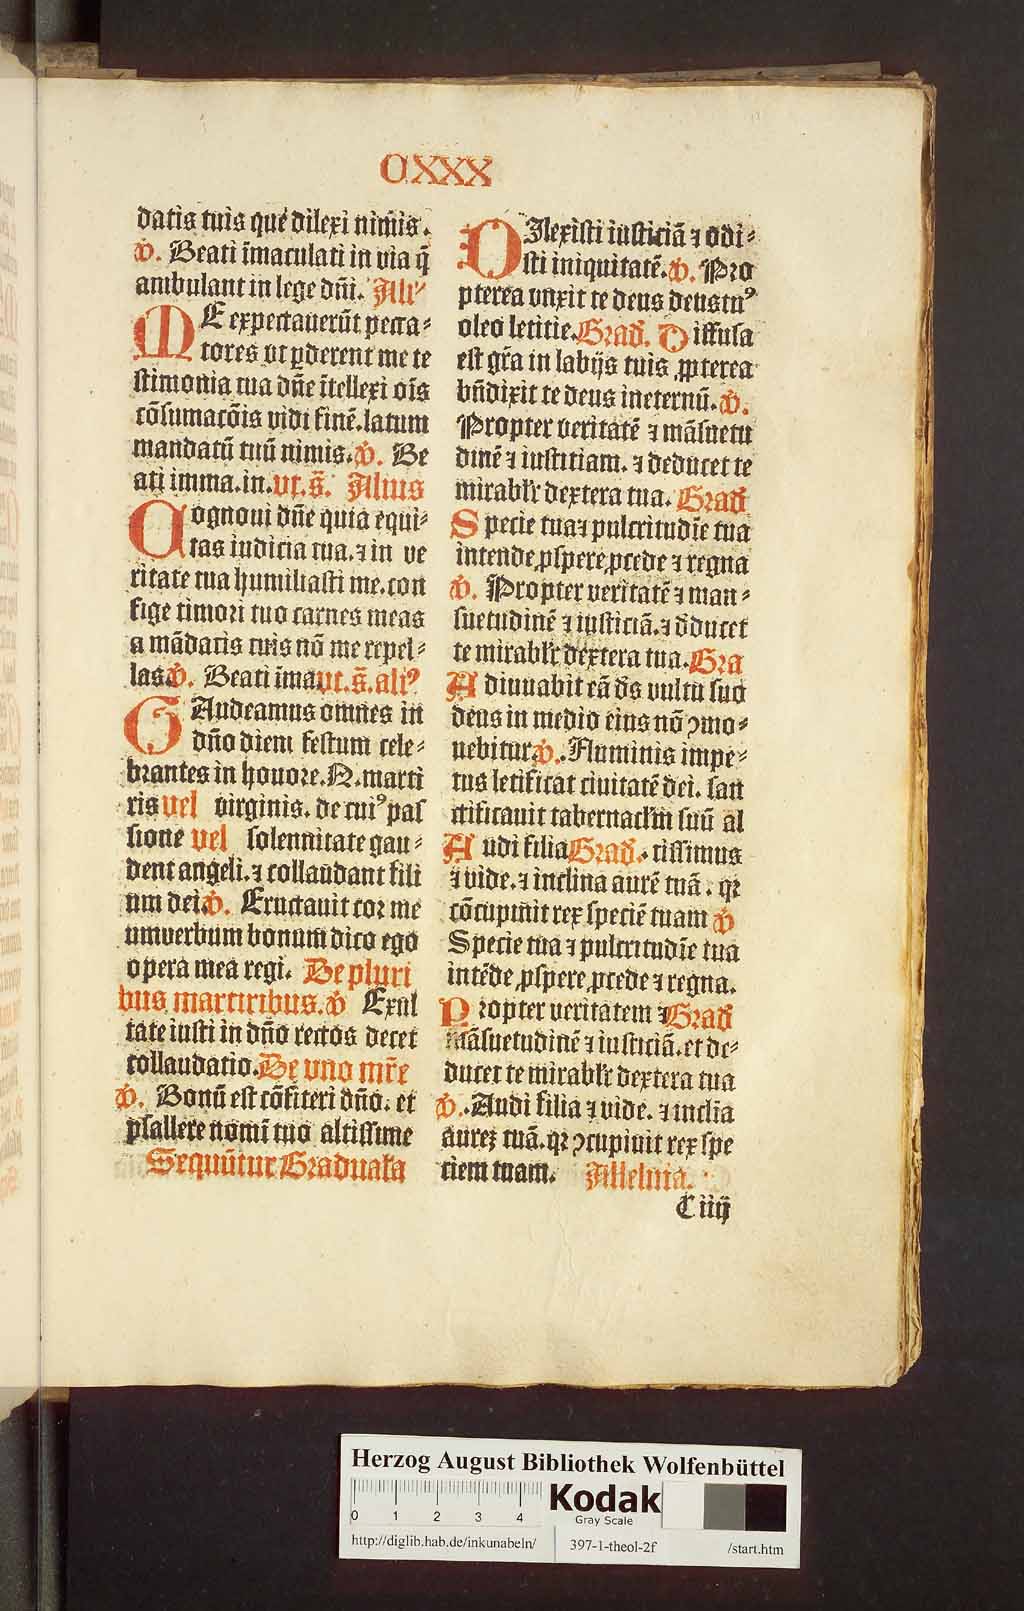 CXXX
datis tuis que dilexi nimis.
v̇. Beati īmaculati in via q̄
ambulant in lege dn̄i. Ali'
ME expectauerūt pecca-
tores vt ꝑderent me te
stimonia tua dn̄e ītellexi oīs
cōsumacōis vidi finē. latum
mandatū tuū nimis. v̇. Be
ati imma. in. vt. s̄. Alius
Cognoui dn̄e quia equi-
tas iudicia tua. ⁊ in ve
ritate tua humiliasti me. con
fige timori tuo carnes meas
a mādatis tuis nō me repel-
las. v̇. Beati īma vt. s̄. ali⁹
GAudeamus omnes in
dn̄o diem festum cele-
brantes in honore. N. marti
ris vel virginis. de cui⁹ pas
sione vel solennitate gau-
dent angeli. ⁊ collaudant fili
um dei. v̇. Eructauit cor me
umverbum bonum dico ego
opera mea regi. De pluri
bus martiribus. v̇ Exul
tate iusti in dn̄o rectos decet
collaudatio. De vno mr̄e
v̇. Bonū est cōfiteri dn̄o. et
psallere nomī tuo altissime
Sequūtur Gradualia
DIlexisti iusticiā ⁊ odi-
sti iniquitatē. v̇. Pro
pterea vnxit te deus deustu⁹
oleo letitie. Grad̄. Diffusa
est gr̄a in labijs tuis ꝓpterea
bn̄dixit te deus ineternū. v̇.
Propter veritatē ⁊ māsuetu
dinē ⁊ iustitiam. ⁊ deducet te
mirabl'r dextera tua. Grad̄
Specie tua ⁊ pulcritudīe tua
intende ꝓspere ꝓcede ⁊ regna
v̇. Propter veritatē ⁊ man-
suetudinē ⁊ iusticiā. ⁊ d̄ducet
te mirabl'r dextera tua. Gra
Adiuuabit eā d̄s vultu suo
deus in medio eius nō ꝯmo-
uebitur. v̇. Fluminis impe-
tus letificat ciuitatē dei. san
ctificauit tabernacl'm suū al
Audi filia Grad̄. tissimus
⁊ vide. ⁊ inclina aurē tuā. qꝛ
cōcupiuit rex speciē tuam v̇
Specie tua ⁊ pulcritudīe tua
intēde ꝓspere ꝓcede ⁊ regna.
Propter veritatem ⁊ Grad̄
māsuetudinē ⁊ iusticiā. et de-
ducet te mirabl'r dextera tua
v̇. Audi filia ⁊ vide. ⁊ inclīa
aureꝫ tuā. qꝛ ꝯcupiuit rex spe
ciem tuam. Alleluia.
C iiij
Herzog August Bibliothek Wolfenbüttel
0 1 2 3 4
Kodak
Gray Scale
http://diglib.hab.de/inkunabeln/ 397-1-theol-2f /start.htm